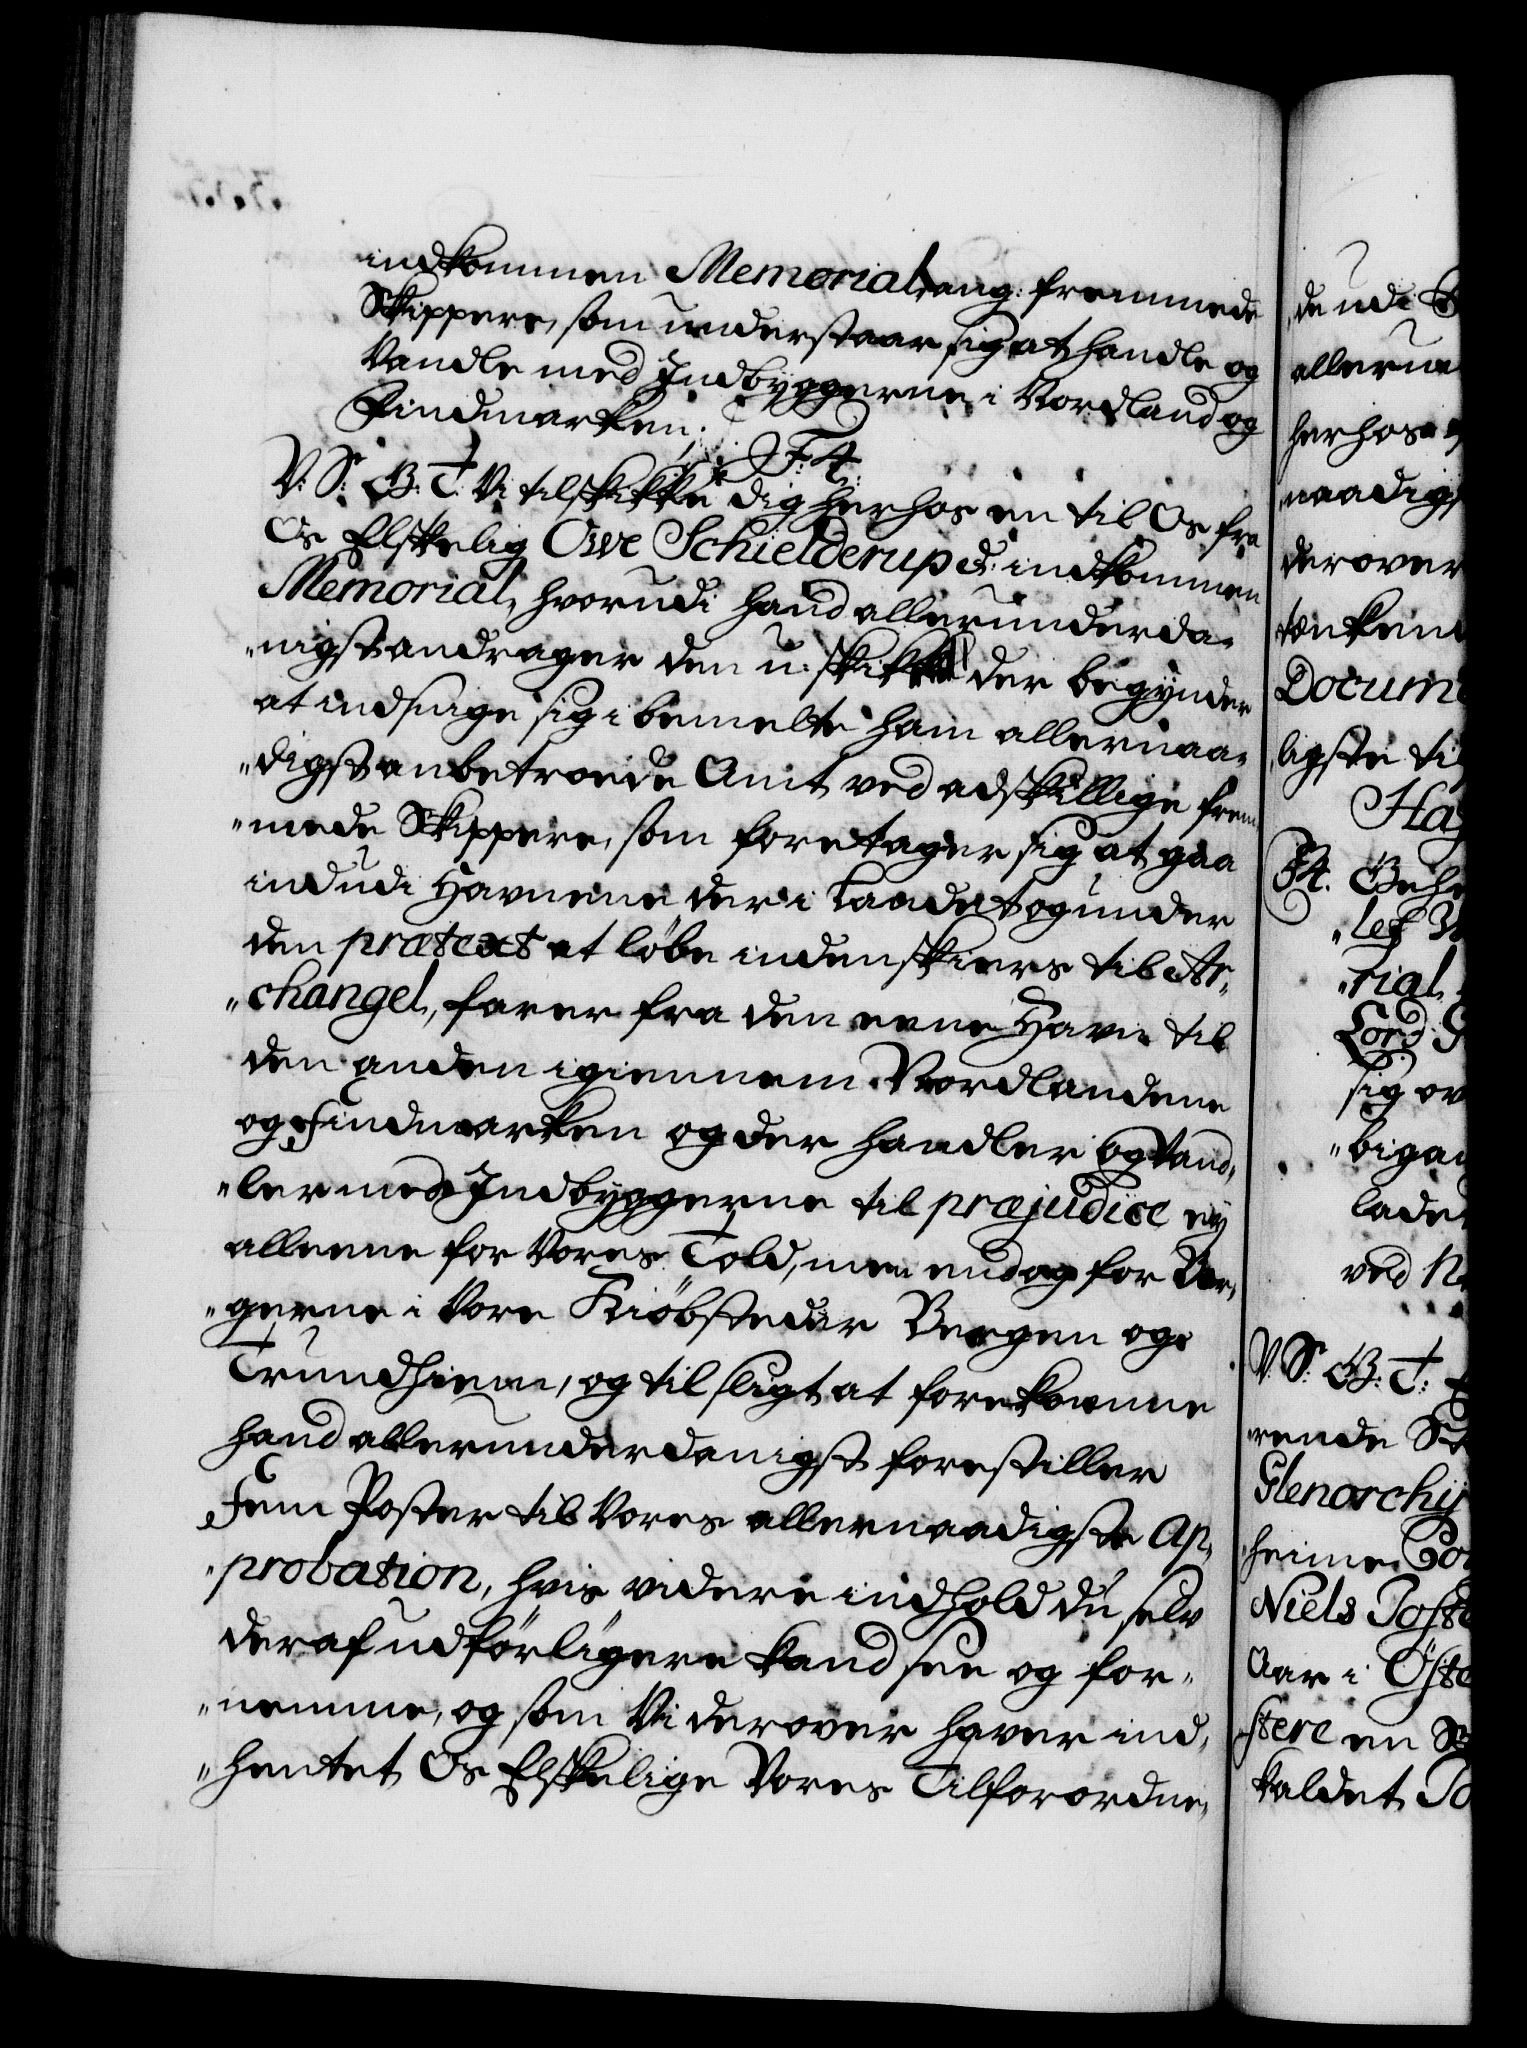 indkommen Memorial, ang: fremmede
Skippere, som understaar sig at handle og
Vandle med Indbyggerne i Nordland og
Findmarken.
F: 4.
V: S: G: T: Vi tilskikke dig herhos en til Os fra
Os Elskelig Owe Schielderup d: indkommen
Memorial, hvorudi hand allerunderda-
"nigst andrager den u-skikk der begynder
at indsnige sig i bemelte ham allernaa-
"digst anbetroede Amt ved adskillige frem
"mede Skippere, som foretager sig at gaa
ind udi Havnene der i Landet og under
den prætext at löbe indenskiers til Ar-
"changel, farer fra den eene Havn til
den anden igiennem Nordlandene
og Findmarken og der handler og Vand-
"ler med Indbyggerne til præjudice ey
alleene for Vores Told, men endog for Bor-
"gerne i Vore Kiöbsteder Bergen og
Trundhiem, og til sligt at forekomme
hand allerunderdanigst forestiller
Fem Poster til Vores allernaadigste Ap-
"probation, hvis videre indhold du selv
deraf udförligere kand see og for-
"nemme, og som Vi derover haver ind-
"hentet Os Elskelige Vores Tilforordne-
de udi
allerun
herhos
naadigs
derover
tenken
Docum
ligste til
Ha
F4. Geh
"lef
"rial
Lord G
sig ov
"biga
lade
ved N
V: S: G: T:
rende
Glenorchy
heime
Niels Joste
Aar i Öste
stere en
kaldet